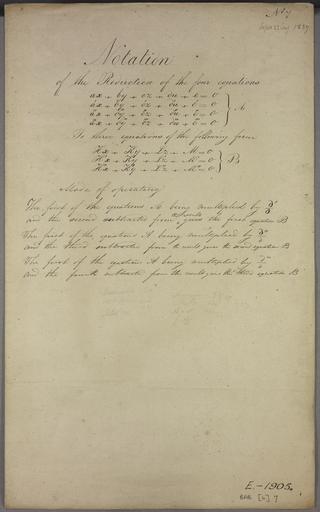 Notation
of the Reduction of the four equations
ax + by + cz + du + e = 0
ax + by + cz + du + e = 0
ax + by + cz + du + e = 0 A
ax + by + cz + du + e = 0
To three equations of the following form
Hx + Ky + Lz + M = 0
Hx + Ky + Lz + M = 0 B
Hx + Ky + Lz + M = 0
Mode of operating
The first of the equations A being multiplied by
and the second subtracted from gives the first equation B
The first of the equations A being multiplied by
and the third subtracted from the result gives the second equation B
The first of the equations A being multiplied by
and the fourth subtracted from the result gives the third equation B
E.-1905.
BAB [U] 7